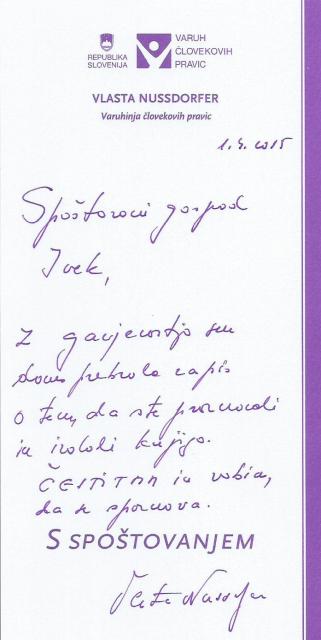 REPUBLIKA
SLOVENIJA
VARUH
ČLOVEKOVIH
PRAVIC
VLASTA NUSSDORFER
Varuhinja človekovih pravic
1.4.2015
Spoštovani gospod
Ivek,
z ganjenostjo sem
danes prebrala zapis
o tem, da ste
in izdali knjigo.
ČESTITAM in vabim,
da se
S SPOŠTOVANJEM
Vlasta Nussdorfer